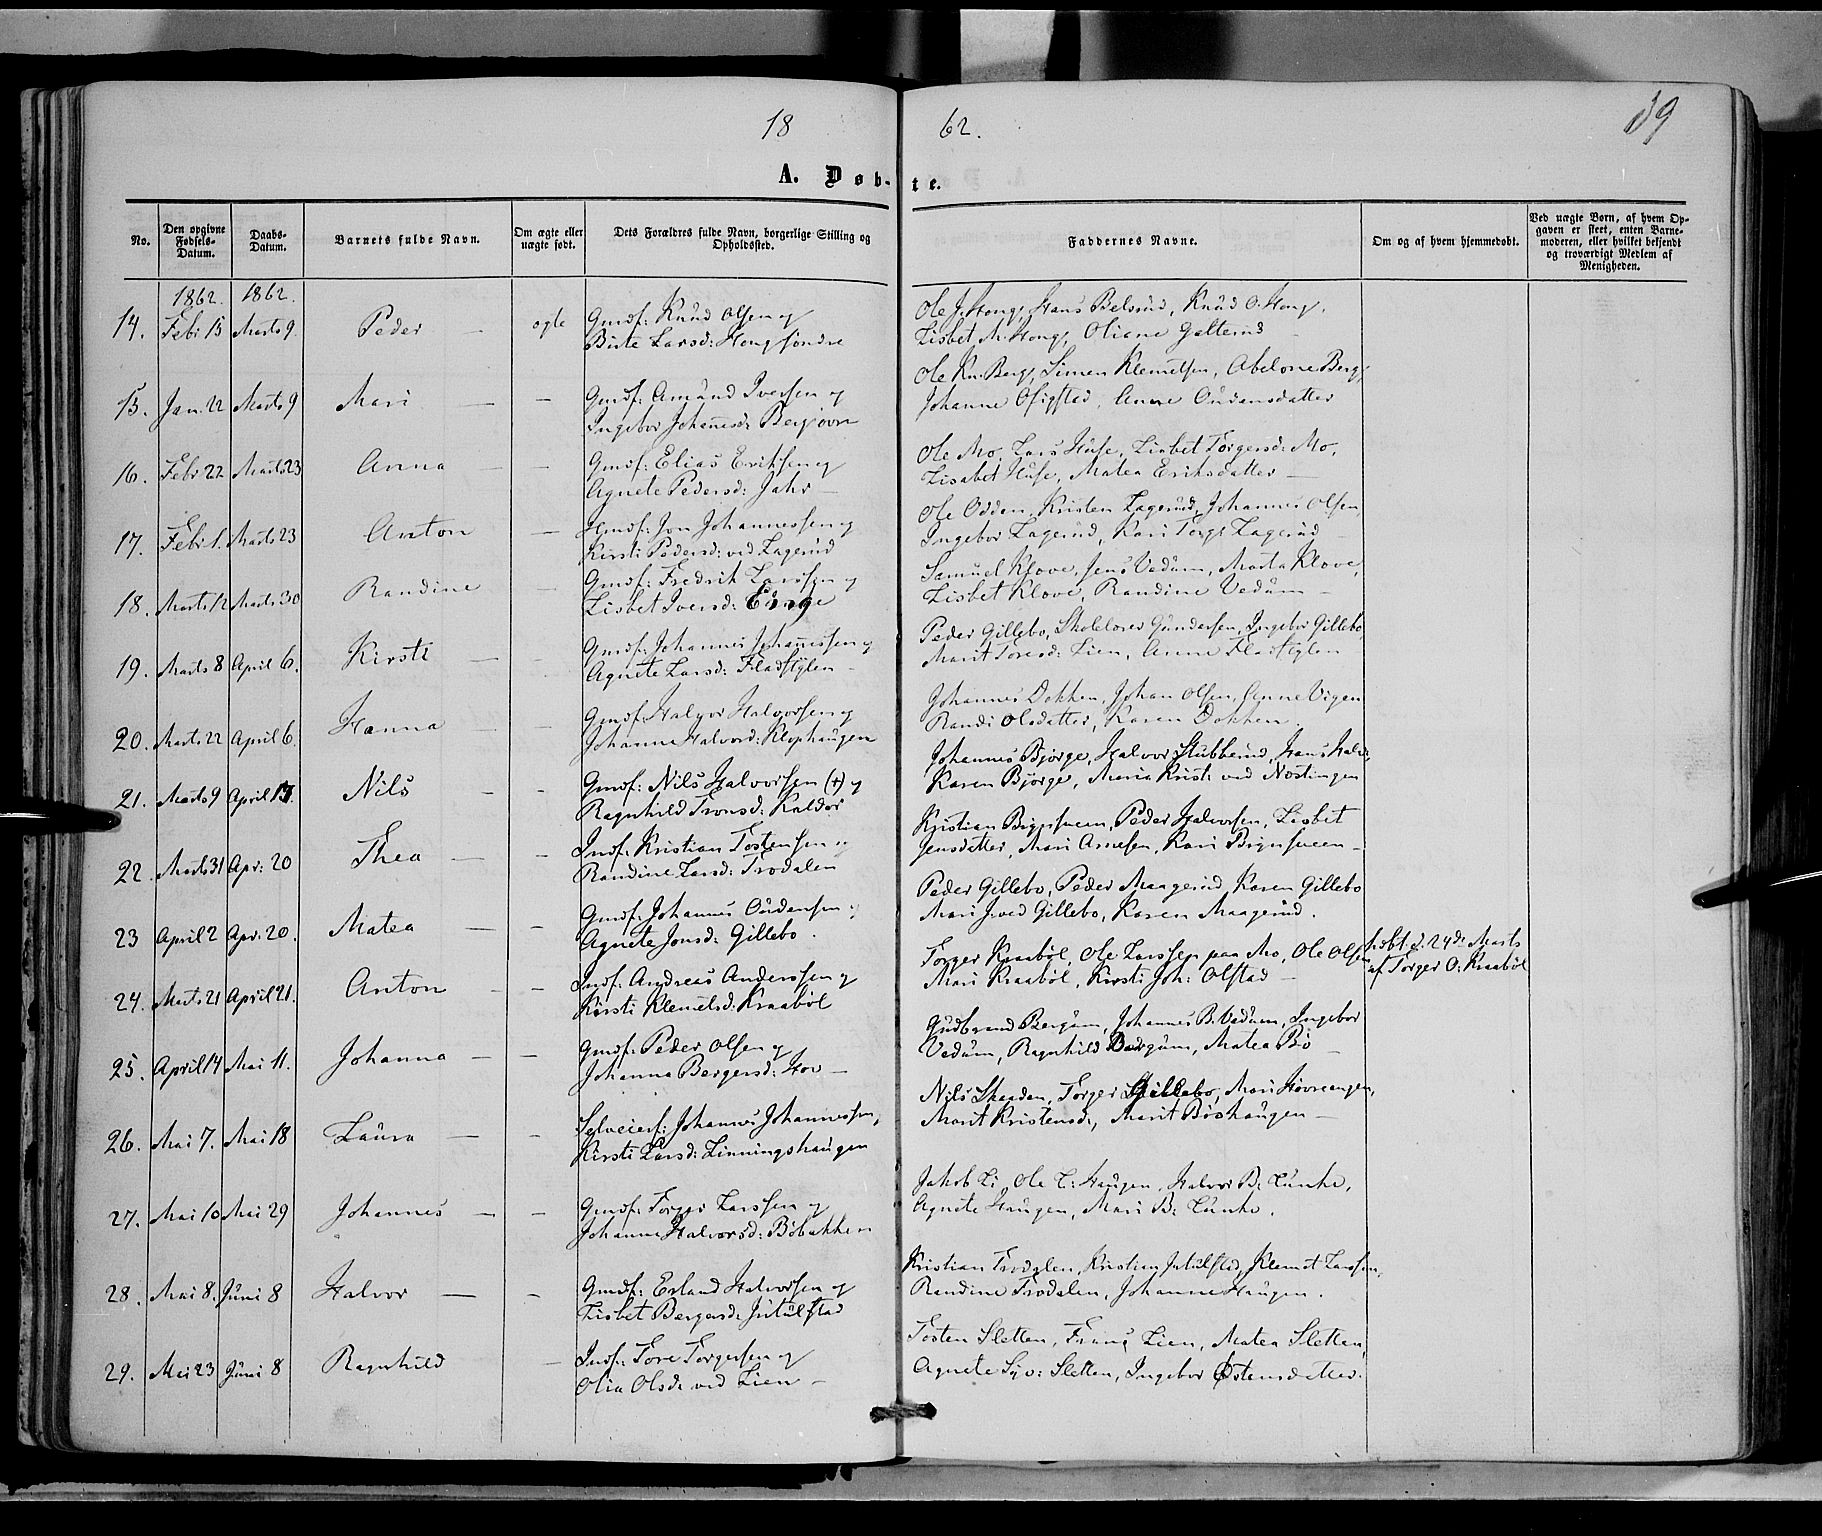 18 62.
39
A. Døb- te.
No. Den opgivne Fødsels-Datum. Daabs-Datum. Barnets fulde Navn. Om ægte eller uægte født. Dets Forældres fulde Navn, borgerlige Stilling og Opholdssted. Faddernes Navne. Om og af hvem hjemmedøbt. Ved uægte Børn, af hvem Opgaven er skeet, enten Barnemoderen, eller hvilket bekjendt og troværdigt Medlem af Menigheden.
1862. 1862.
14. Febr 15 Marts 9. Peder — ægte Gmdf: Knud Olsen og
Birte Larsd: Hong søndre
Ole J. Hong, Hans Belsrud, Knud O. Hong,
Lisbet M. Hong, Oliane Galterud
15. Jan. 22 Marts 9 Mari — — Gmdf: Amund Iversen og
Ingebor Johannesd:
Ole Kn. Berg, Simen Klemetsen, Abelone Berg,
Johanne Ofigstad, Anne Oudensdatter
16. Febr 22 Marts 23 Anna — — Gmdf: Elias Eriksen og
Agnete Pedersd: Jahr —
Ole Mo, Lars Huse, Lisbet Torgersd: Mo,
Lisabet Huse, Matea Eriksdatter —
17. Febr 1. Marts 23 Anton — Hmdf: Jon Johannessen og
Kirsti Pedersd: ved Lagerud
Ole Odden, Kristen Lagerud, Johannes Olsen,
Ingebor Lagerud, Kari Torgs Lagerud —
18. Marts 12 Marts 30 Randine — Gmdf: Fredrik Larssen og
Lisbet Iversd:
Samuel Klove, Jens Vedum, Marta Klove,
Lisbet Klove, Randine Vedum —
19. Marts 8 April 6. Kirsti — — Gmdf: Johannes Johannessen og
Agnete Larsd: Fladstylen —
Peder Gillebo, Skolelærer Gundersen, Ingebor Gillebo,
Marit Toresd: Lien, Anne Fladstylen
20. Marts 22 April 6. Hanna — — Gmdf: Halvor Halvorsen og
Johanne Halvord: Klophaugen
Johannes Dokken, Johan Olsen, Anne Vigen
Randi Olsdatter, Karen Dokken.
21. Marts 9 April 13. Nils — — Gmdf: Nils Halvorsen (+) og
Ragnhild Tronsd: Kaldor
Johannes Bjørge, Halvor Stubberud, Hans Halv:,
Karen Bjørge, Maria Krist: ved Nøstingen
22. Marts 31 Apr: 20 Thea — — Indf: Kristian Tostensen og
Randine Larsd: Trodalen
Kristian Brynsueen, Peder Halvorsen, Lisbet
Jensdatter, Mari Arnesen, Kari Brynsueen —
23 April 2 Apr: 20. Matea — — Gmdf: Johannes Oudensen og
Agnete Jonsd: Gillebo.
Peder Gillebo, Peder Maagerud, Karen Gillebo
Mari J. ved Gillebo, Karen Maagerud.
24. Marts 21 April 21. Anton — — Indf: Andreas Anderssen og
Kirsti Klemetsd: Kraabøl
Torger Kraabøl, Ole Larssen paa Mo, Ole Olsen,
Mari Kraabøl, Kirsti Joh: Olstad —
h.døbt d. 24de Marts
af Torger O: Kraabøl
25. April 14 Mai 11. Johanna — — Gmdf: Peder Olsen og
Johanna Bergersd: Hov —
Gudbrand Bergum, Johannes B. Vedum, Ingebor
Vedum, Ragnhild Bergum, Matea Bø —
26. Mai 7. Mai 18 Laura — — Selveierf: Johannes Johannessen,
Kirsti Larsd: Linningshaugen
Nils Skaaden, Torger Gillebo, Mari Hovreengen,
Marit Kristensd:, Marit Bøshaugen —
27. Mai 10 Mai 29 Johannes — — Gmdf: Torger Larssen og
Johanne Halvorsd: Bøbakken
Jakob Li, Ole L: Haugen, Halvor B: Lunke,
Agnete Haugen, Mari B: Lunke.
28. Mai 8. Juni 8 Halvor — — Gmdf: Erland Halvorsen og
Lisbet Bergersd: Jutulstad
Kristian Trodalen, Kristian Jutulstad, Klemet Larssen,
Randine Trodalen, Johanne Haugen.
29. Mai 23 Juni 8 Ragnhild — Indf: Tore Torgersen og
Olia Olsd: ved Lien —
Tosten Sletten, Frans Lien, Matea Sletten,
Agnete Syv: Sletten, Ingebor Østensdatter.